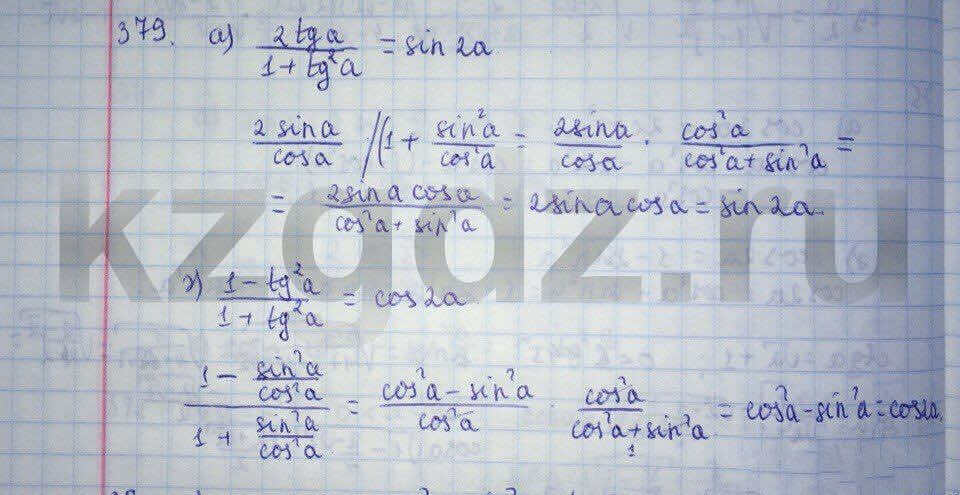 379. a) 2 tg a / 1 + tg²a = sin 2a
2 sin a / cos a / (1 + sin²a / cos²a = 2 sin a / cos a · cos²a / cos²a + sin²a =
= 2 sin a cos a / cos²a + sin²a = 2 sin a cos a = sin 2a.
1 - tg²a / 1 + tg²a = cos 2a
1 - sin²a / cos²a / 1 + sin²a / cos²a = cos²a - sin²a / cos²a · cos²a / cos²a + sin²a 1 = cos²a - sin²a = cos 2a.
kzgdz.ru